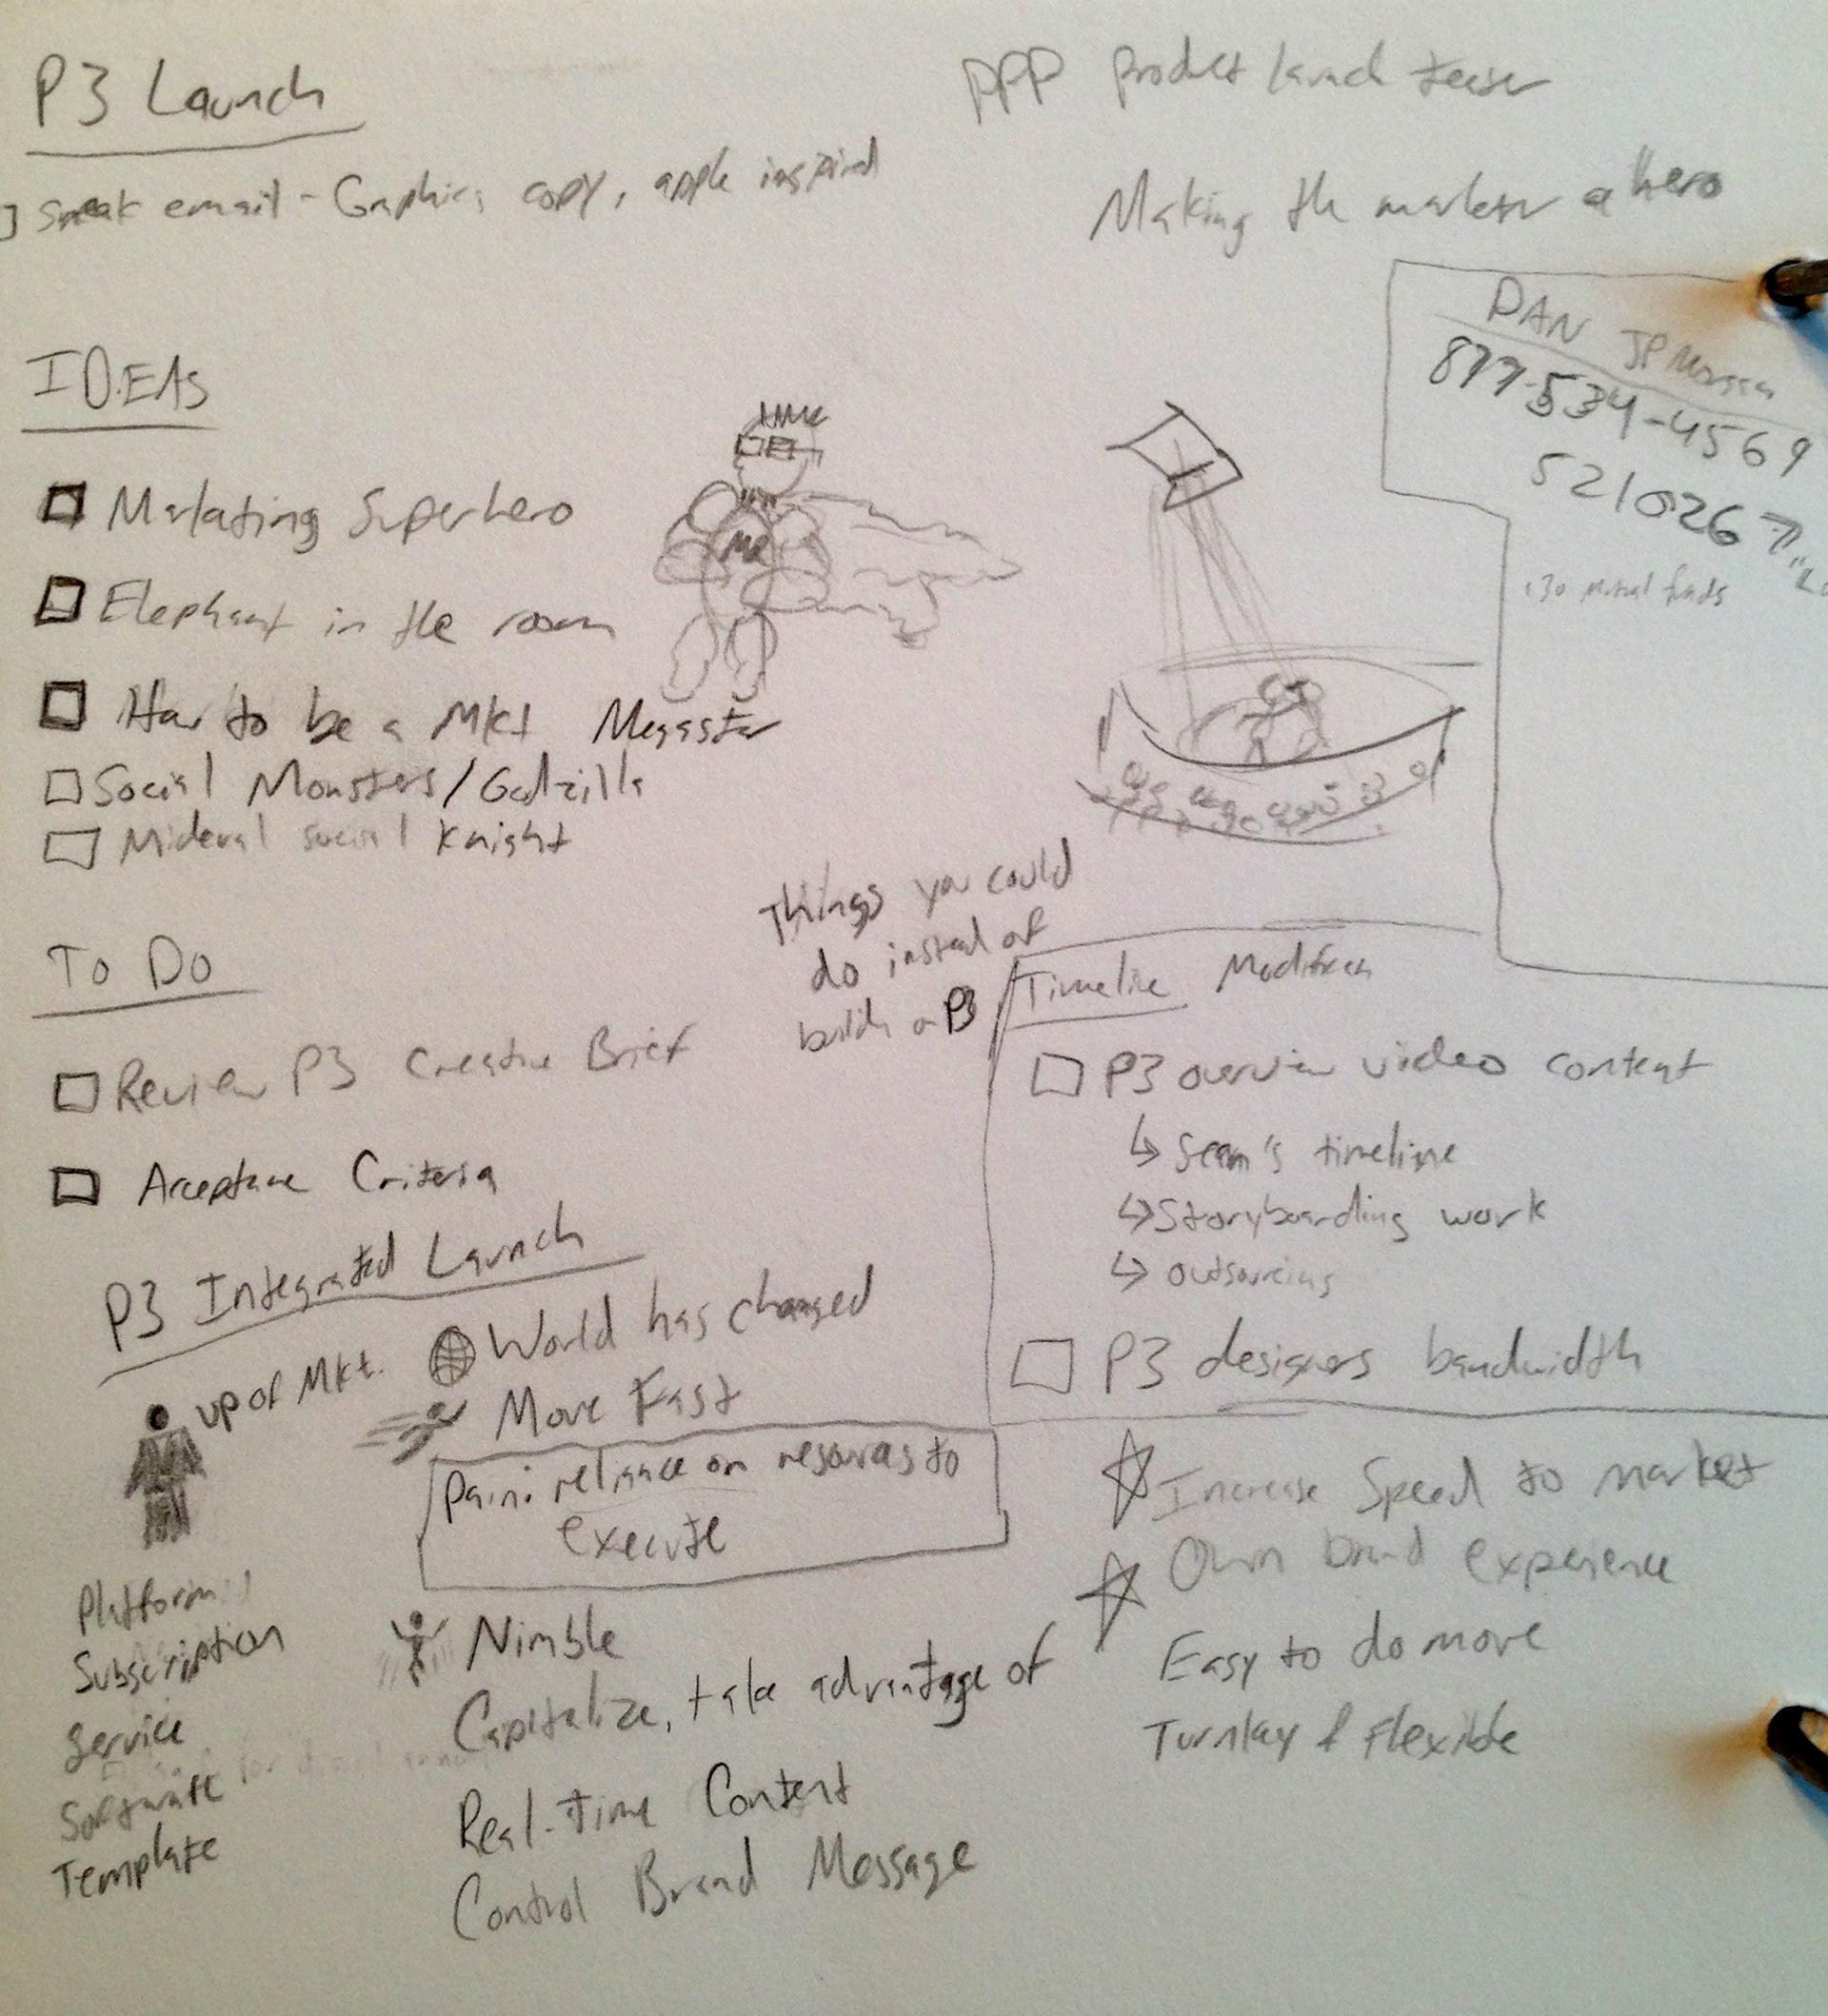 P3 Launch
sneak email - Graphics, copy, apple inspired
PPP product launch teaser
Making the marketer a hero
DAN JP Morgan
877-534-4569
5210267
130 Mutual funds
IDEAS
Marketing Superhero
MR
Elephant in the room
How to be a Mkt Megastar
Social Monsters/Godzilla
Mideval social knight
Things you could
do instead of
building a P3
To Do
Review P3 Creative Brief
Acceptance Criteria
Timeline Modifiers
P3 overview video content
↳ Sean's timeline
↳ Storyboarding work
↳ outsourcing
P3 designers bandwidth
P3 Integrated Launch
VP of Mkt.
World has changed
Move Fast
Pain: reliance on resources to
execute
Nimble
Capitalize, take advantage of
Real-Time Content
Control Brand Message
Platform
Subscription
Service
Software
Template
Increase Speed to market
Own brand experience
Easy to do more
Turnkey & Flexible